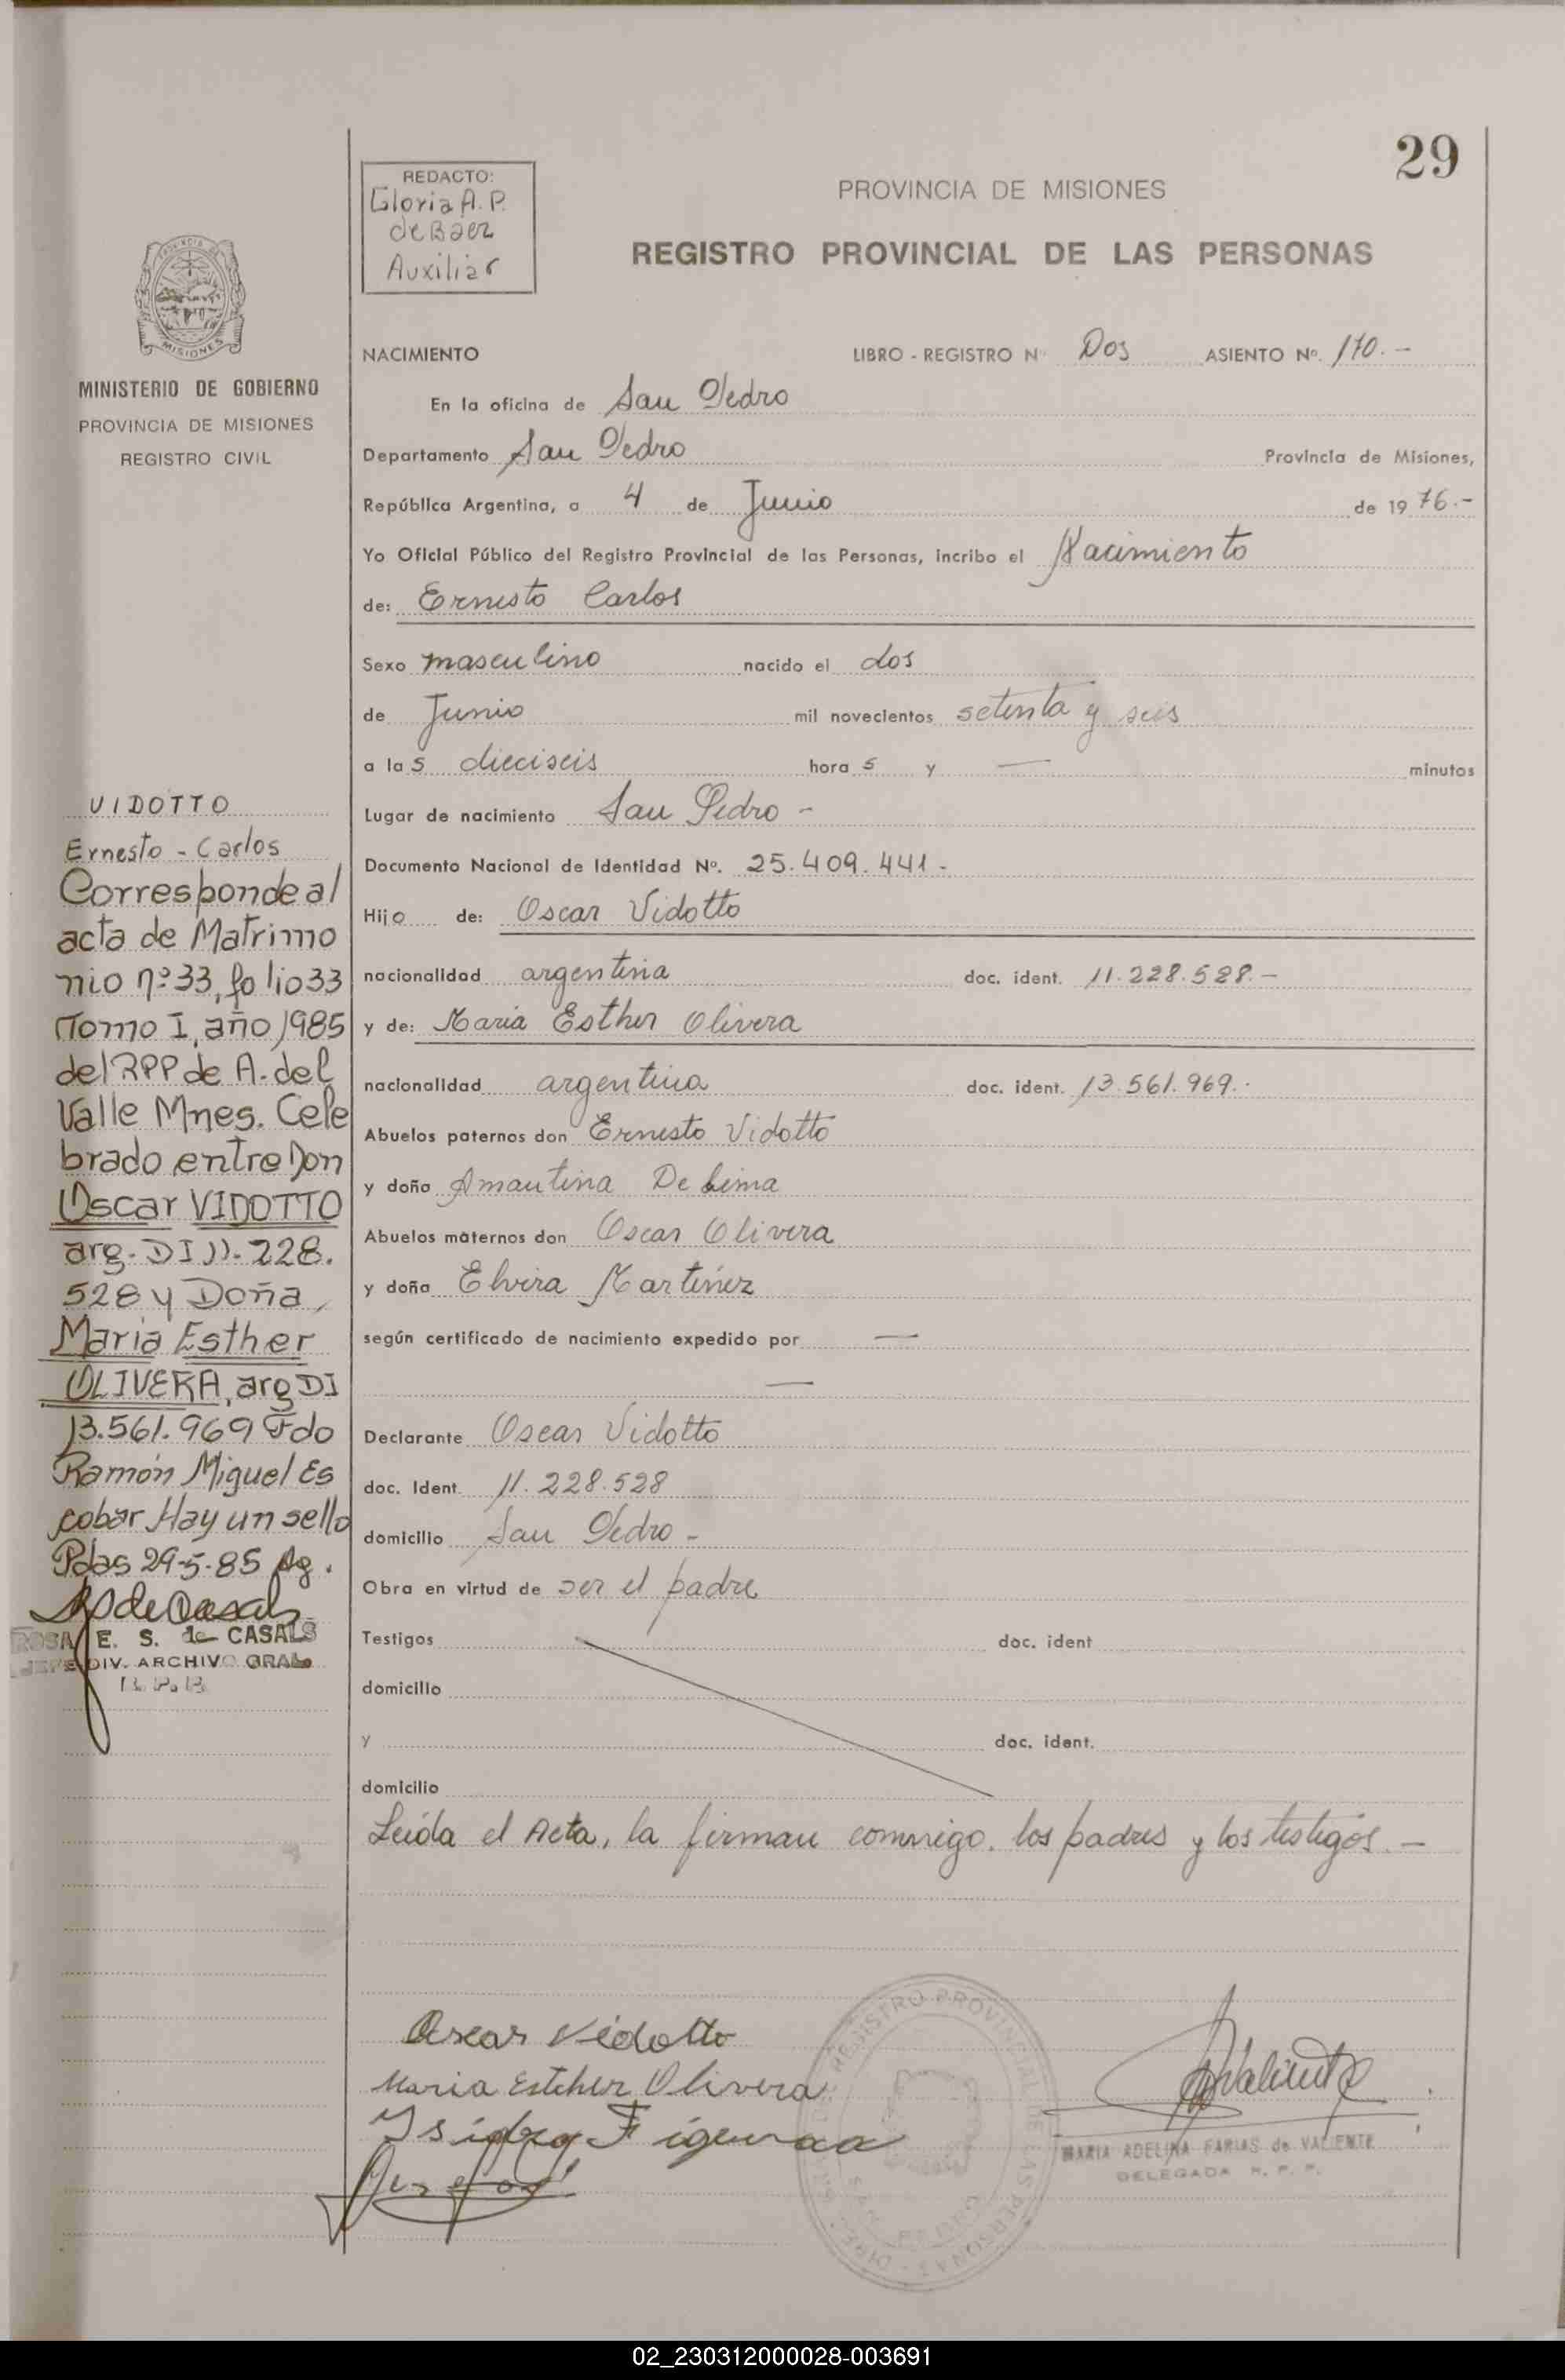 29
REDACTO:
Gloria A. P.
de Baez
Auxiliar
PROVINCIA DE MISIONES
REGISTRO PROVINCIAL DE LAS PERSONAS
MISIONES
MINISTERIO DE GOBIERNO
PROVINCIA DE MISIONES
REGISTRO CIVIL
NACIMIENTO LIBRO - REGISTRO Nº Dos ASIENTO Nº. 170.-
En la oficina de San Pedro
Departamento San Pedro Provincia de Misiones,
República Argentina, a 4 de Junio de 1976.-
Yo Oficial Público del Registro Provincial de las Personas, incribo el Nacimiento
de: Ernesto Carlos
Sexo masculino nacido el dos
de Junio mil novecientos setenta y seis
a las dieciseis horas y — minutos
Lugar de nacimiento San Pedro -
Documento Nacional de Identidad Nº. 25.409.441-
Hijo de: Oscar Vidotto
nacionalidad argentina doc. ident. 11.228.528.-
y de: Maria Esther Olivera
nacionalidad argentina doc. ident. 13.561.969.-
Abuelos paternos don Ernesto Vidotto
y doña Amantina De Lima
Abuelos maternos don Oscar Olivera
y doña Elvira Martinez
según certificado de nacimiento expedido por —
—
Declarante Oscar Vidotto
doc. Ident. 11.228.528
domicilio San Pedro -
Obra en virtud de ser el padre
Testigos doc. ident
domicilio
y doc. ident.
domicilio
Leída el Acta, la firman conmigo. los padres y los testigos.-
VIDOTTO
Ernesto - Carlos
Corresponde al
acta de Matrimo
nio nº 33, folio 33
Tomo I, año 1985
del RPP de A. del
Valle Mnes. Cele
brado entre Don
Oscar VIDOTTO
arg. DI 11.228.
528 y Doña
Maria Esther
OLIVERA, arg DI
13.561.969 Fdo
Ramón Miguel Es
cobar Hay un sello
Pdas 29-5-85
ROSA E. S. de CASALS
JEFE DIV. ARCHIVO GRAL.
Oscar Vidotto
Maria Esther Olivera
REGISTRO PROVINCIAL DE LAS PERSONAS
SAN PEDRO
MARIA ADELINA FARIAS de VALIENTE
DELEGADA R. P. P.
02_230312000028-003691